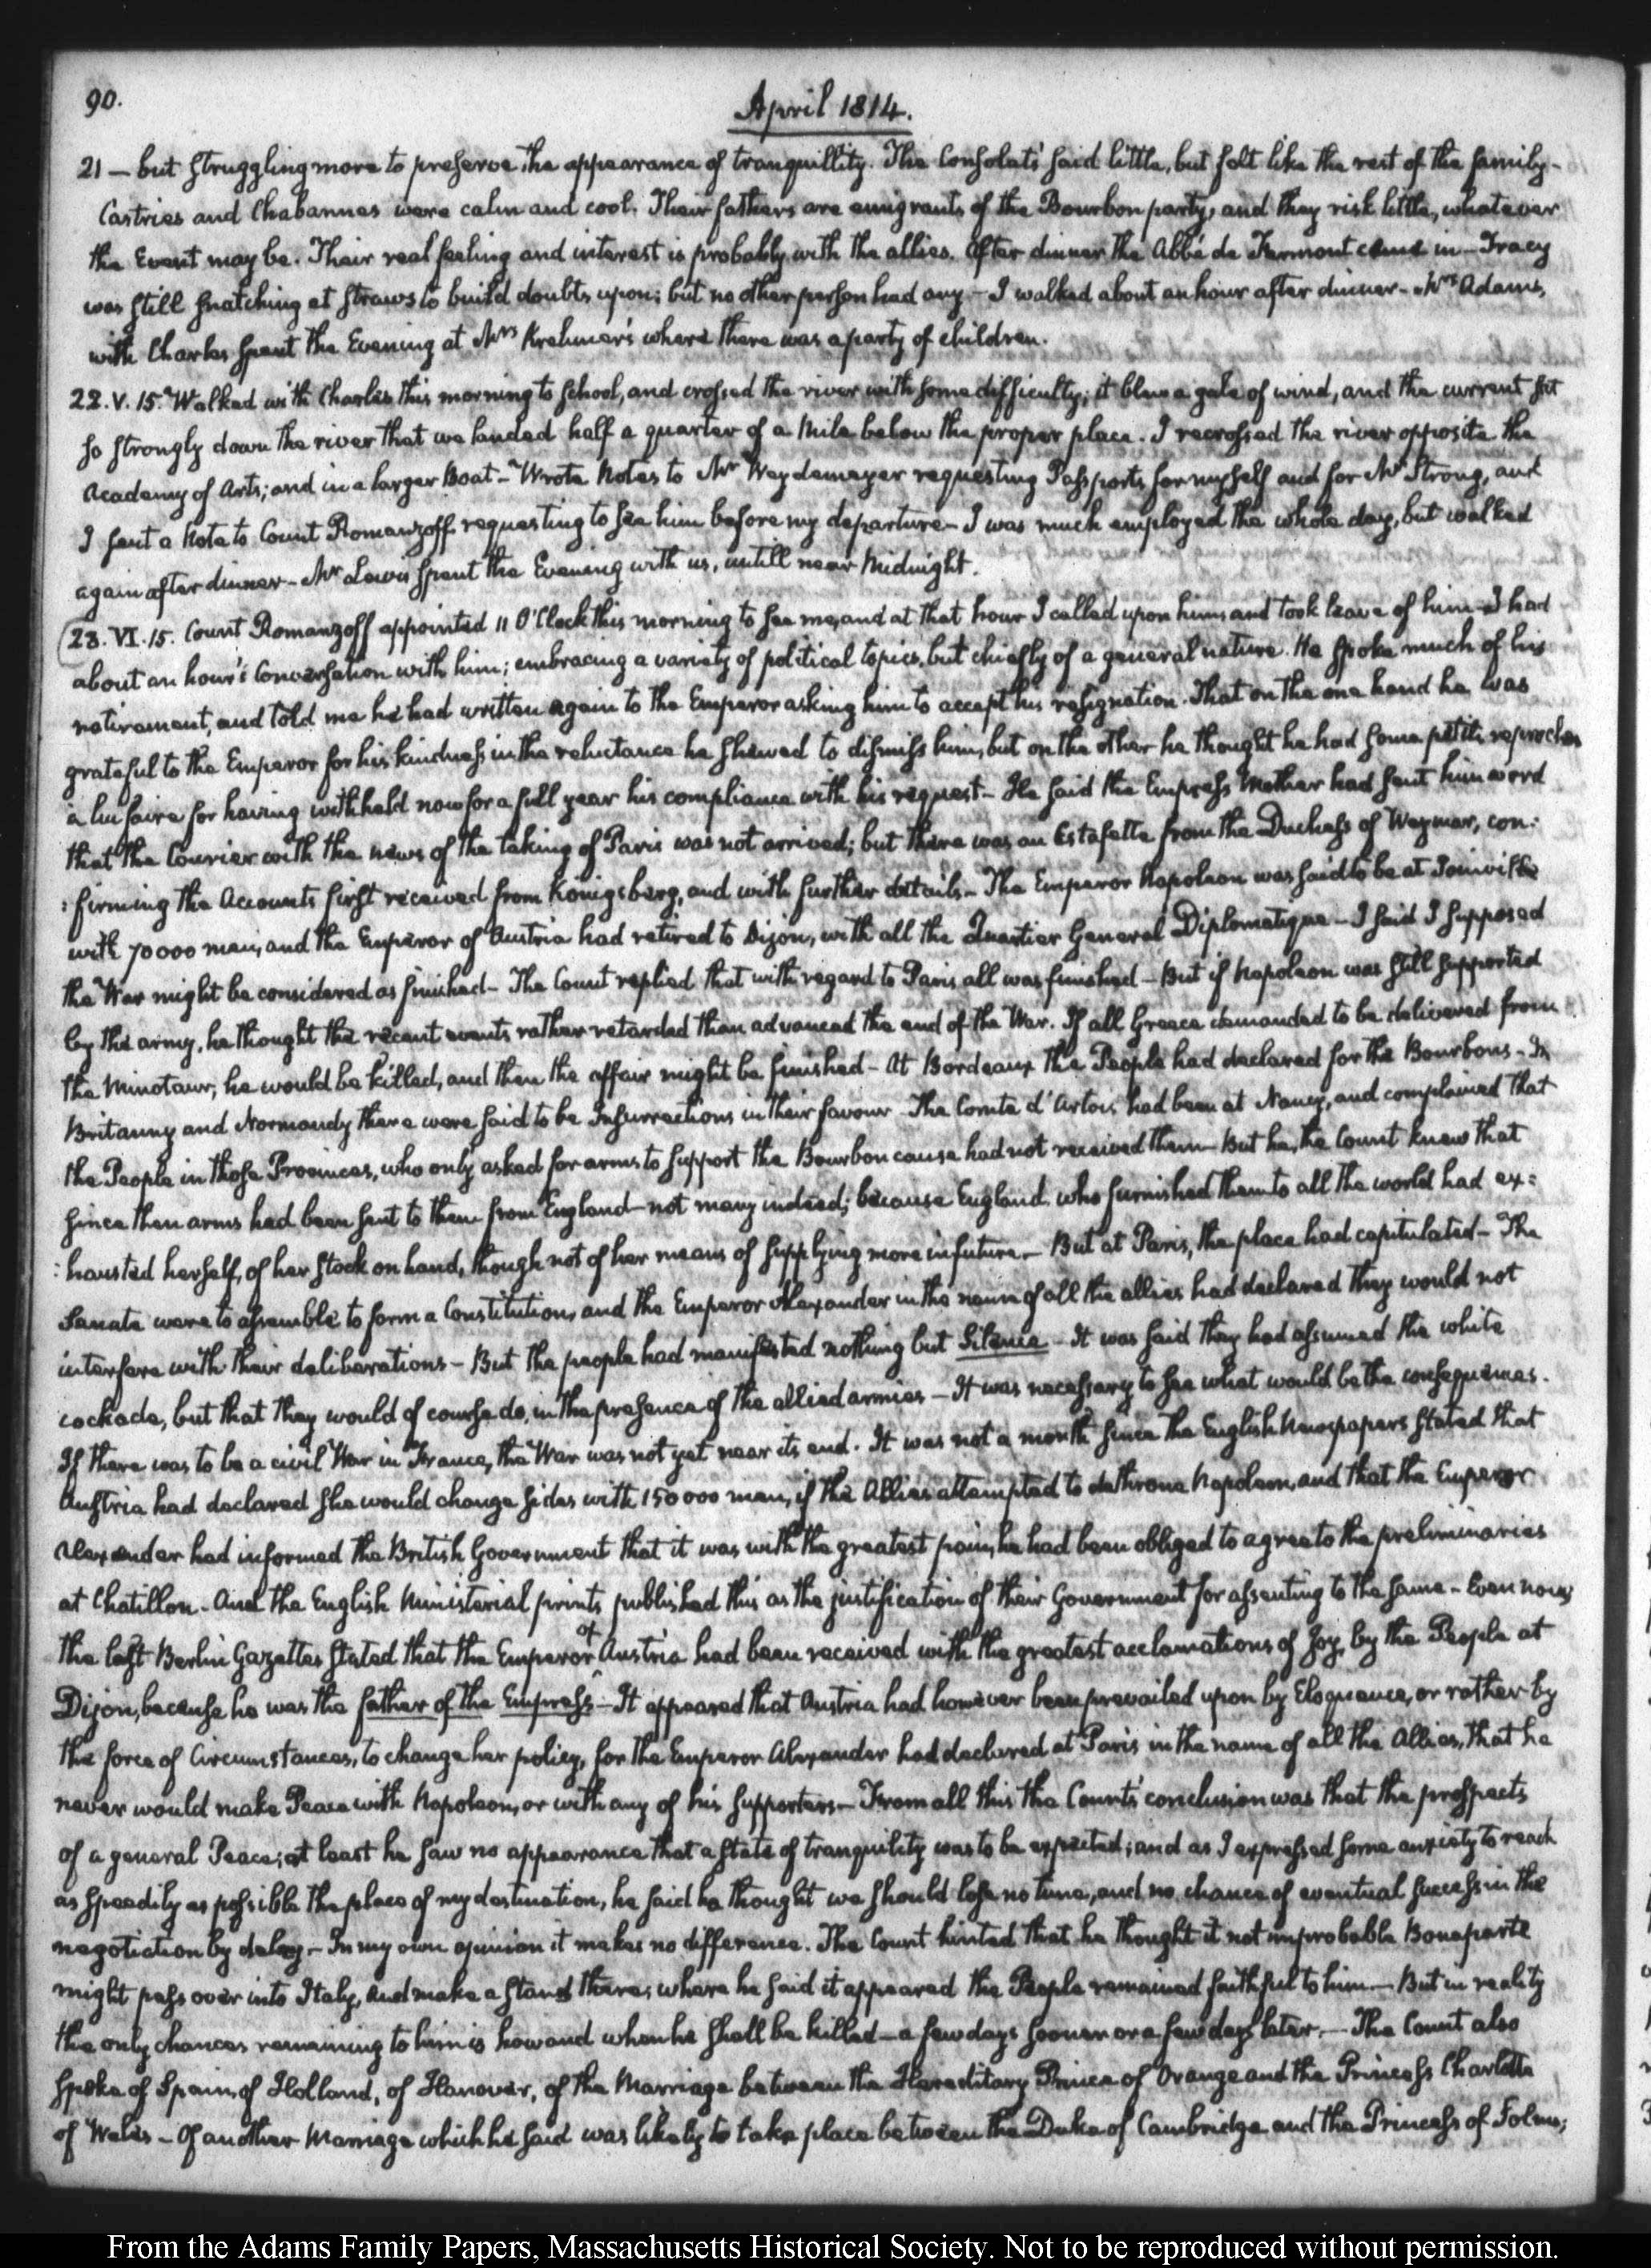 90.
April 1814.
21 — but struggling more to preserve the appearance of tranquillity. The Consolati's said little, but felt like the rest of the family -
Castries and Chabannes were calm and cool. Their fathers are emigrants of the Bourbon party, and they risk little, whatever
the Event may be. Their real feeling and interest is probably with the allies. After dinner the Abbé de came in - Tracy
was still snatching at straws to build doubts upon; but no other person had any - I walked about an hour after dinner - Mrs Adams,
with Charles spent the Evening at Mrs Krehmer's where there was a party of children.
22. V. 15. Walked with Charles this morning to school, and crossed the river with some difficulty; it blew a gale of wind, and the current set
so strongly down the river that we landed half a quarter of a Mile below the proper place. I recrossed the river opposite the
Academy of Arts; and in a larger Boat - Wrote Notes to Mr Weydemeyer requesting Passports for myself and for Mr Strong, and
I sent a Note to Count Romanzoff requesting to see him before my departure - I was much employed the whole day, but walked
again after dinner - Mr Lewis spent the Evening with us, untill near Midnight.
23. VI. 15. Count Romanzoff appointed 11 O'Clock this morning to see me, and at that hour I called upon him, and took leave of him - I had
about an hour's Conversation with him; embracing a variety of political topics, but chiefly of a general nature. He spoke much of his
retirement, and told me he had written again to the Emperor asking him to accept his resignation. That on the one hand he was
grateful to the Emperor for his kindness in the reluctance he shewed to dismiss him, but on the other he thought he had some petits reproches
à lui faire for having withheld now for a full year his compliance with his request - He said the Empress Mother had sent him word
that the Courier with the news of the taking of Paris was not arrived; but there was an Estafette from the Duchess of Weymar, con:
:firming the Accounts first received from Königsberg, and with further details - The Emperor Napoleon was said to be at Joinville
with 70000 men, and the Emperor of Austria had retired to Dijon, with all the Quartier General Diplomatique - I said I supposed
the War might be considered as finished - The Count replied that with regard to Paris all was finished - But if Napoleon was still supported
by the army, he thought the recent events rather retarded than advanced the end of the War. If all Greece demanded to be delivered from
the Minotaur, he would be killed, and then the affair might be finished - At Bordeaux the People had declared for the Bourbons - In
Britanny and Normandy there were said to be Insurrections in their favour The Comte d'Artois had been at Nancy, and complained that
the People in those Provinces, who only asked for arms to support the Bourbon cause had not received them - But he, the Count knew that
since then arms had been sent to them from England - not many indeed; because England who furnished them to all the world had ex:
:hausted herself, of her stock on hand, though not of her means of supplying more in future - But at Paris, the place had capitulated - The
Senate were to assemble to form a Constitution, and the Emperor Alexander in the name of all the allies had declared they would not
interfere with their deliberations - But the people had manifested nothing but Silence - It was said they had assumed the white
cockade, but that they would of course do, in the presence of the allied armies - It was necessary to see what would be the consequences.
If there was to be a civil War in France, the War was not yet near its end. It was not a month since the English Newspapers stated that
Austria had declared she would change sides with 150000 men, if the Allies attempted to dethrone Napoleon, and that the Emperor
Alexander had informed the British Government that it was with the greatest pain, he had been obliged to agree to the preliminaries
at Chatillon - And the English Ministerial prints published this as the justification of their Government for assenting to the same - Even now,
the last Berlin Gazettes stated that the Emperor of Austria had been received with the greatest acclamations of Joy, by the People at
Dijon, because he was the father of the Empress - It appeared that Austria had however been prevailed upon by Eloquence, or rather by
the force of Circumstances, to change her policy, for the Emperor Alexander had declared at Paris in the name of all the Allies, that he
never would make Peace with Napoleon, or with any of his supporters - From all this the Count's conclusion was that the prospects
of a general Peace; at least he saw no appearance that a state of tranquility was to be expected; and as I expressed some anxiety to reach
as speedily as possible the place of my destination, he said he thought we should lose no time, and no chance of eventual success in the
negotiation by delay - In my own opinion it makes no difference. The Count hinted that he thought it not improbable Bonaparte
might pass over into Italy, and make a stand there; where he said it appeared the People remained faithful to him - But in reality
the only chances remaining to him is how and when he shall be killed - a few days sooner or a few days later. - The Count also
spoke of Spain, of Holland, of Hanover, of the Marriage between the Hereditary Prince of Orange and the Princess Charlotte
of Wales - Of another Marriage which he said was likely to take place between the Duke of Cambridge and the Princess of Solms;
From the Adams Family Papers, Massachusetts Historical Society. Not to be reproduced without permission.